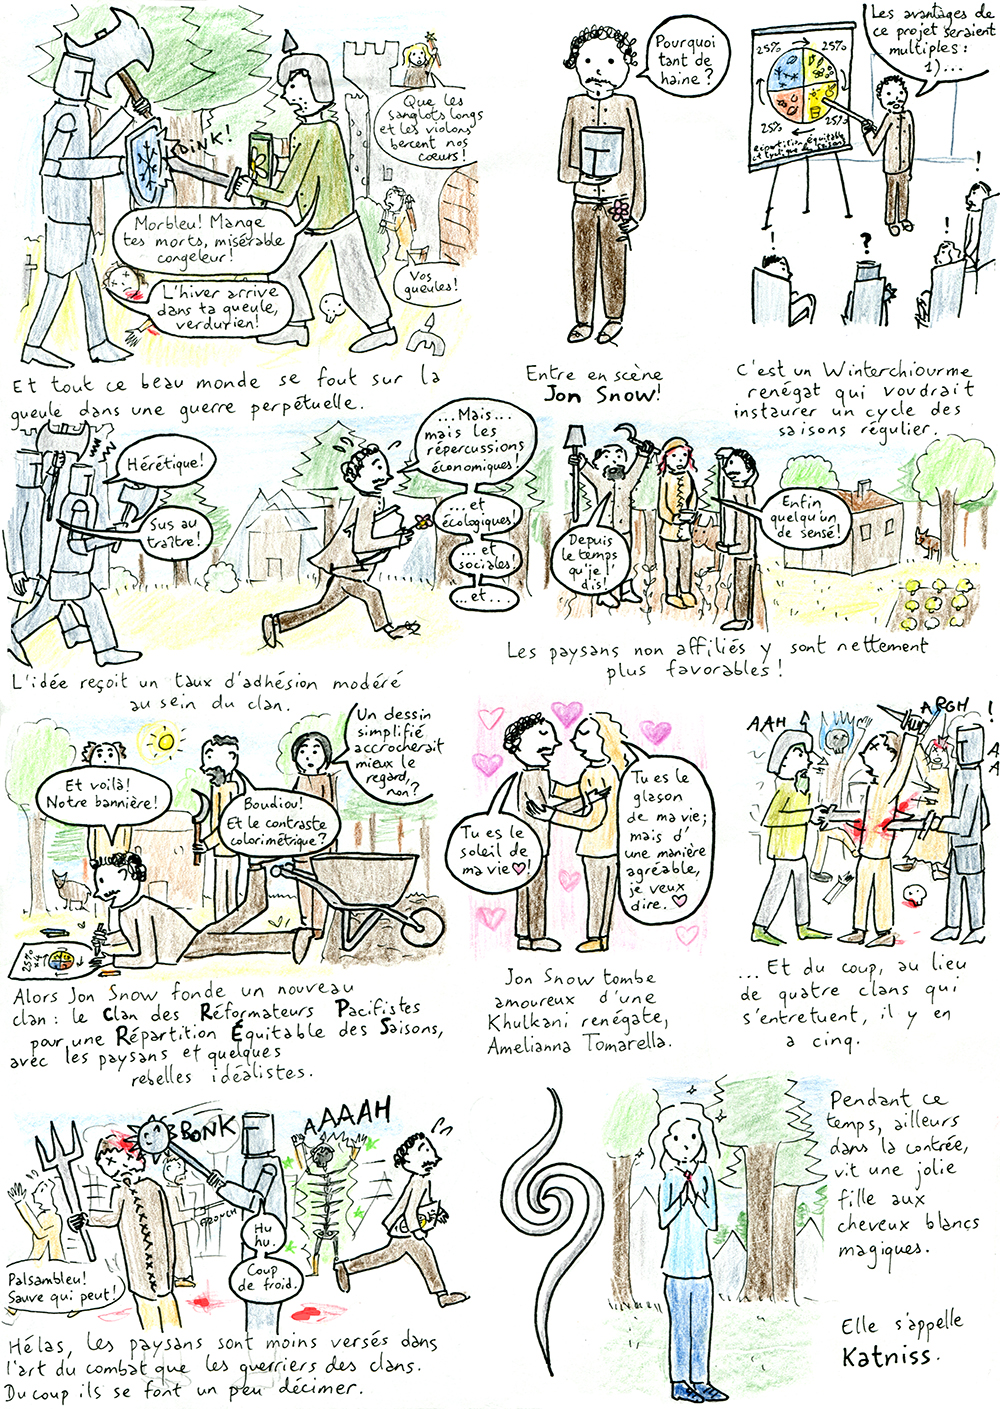 Que les
sanglots longs
et les violons
bercent nos
cœurs!
DINK!
Morbleu! Mange
tes morts, misérable
congeleur!
L'hiver arrive
dans ta gueule,
verdurien!
Vos
gueules!
Et tout ce beau monde se fout sur la
gueule dans une guerre perpétuelle.
Pourquoi
tant de
haine?
Entre en scène
Jon Snow!
Les avantages de
ce projet seraient
multiples:
1)...
25%
25%
25%
25%
répartition équitable
et cyclique des saisons
!
!
?
!
C'est un Winterchiourme
renégat qui voudrait
instaurer un cycle des
saisons régulier.
Hérétique!
Sus au
traître!
...Mais...
mais les
répercussions
économiques!
...et
écologiques!
...et
sociales!
...et...
L'idée reçoit un taux d'adhésion modéré
au sein du clan.
Depuis
le temps
qu'je l'
dis!
Enfin
quelqu'un
de sensé!
Les paysans non affiliés y sont nettement
plus favorables!
Et voilà!
Notre bannière!
Boudiou!
Et le contraste
colorimétrique?
Un dessin
simplifié
accrocherait
mieux le
regard,
non?
25%
x4
Alors Jon Snow fonde un nouveau
clan: le Clan des Réformateurs Pacifistes
pour une Répartition Équitable des Saisons,
avec les paysans et quelques
rebelles idéalistes.
Tu es le
soleil de
ma vie♡!
Tu es le
glason
de ma vie;
mais d'
une manière
agréable,
je veux
dire.♡
Jon Snow tombe
amoureux d'une
Khulkani renégate,
Amelianna Tomarella.
AAH
ARGH
!
A
A
...Et du coup, au lieu
de quatre clans qui
s'entretuent, il y en
a cinq.
BONK
AAAAH
CRONCH
Palsambleu!
Sauve qui peut!
Hu
hu.
Coup
de froid.
Hélas, les paysans sont moins versés dans
l'art du combat que les guerriers des clans.
Du coup ils se font un peu décimer.
Pendant ce
temps, ailleurs
dans la contrée,
vit une jolie
fille aux
cheveux blancs
magiques.
Elle s'appelle
Katniss.